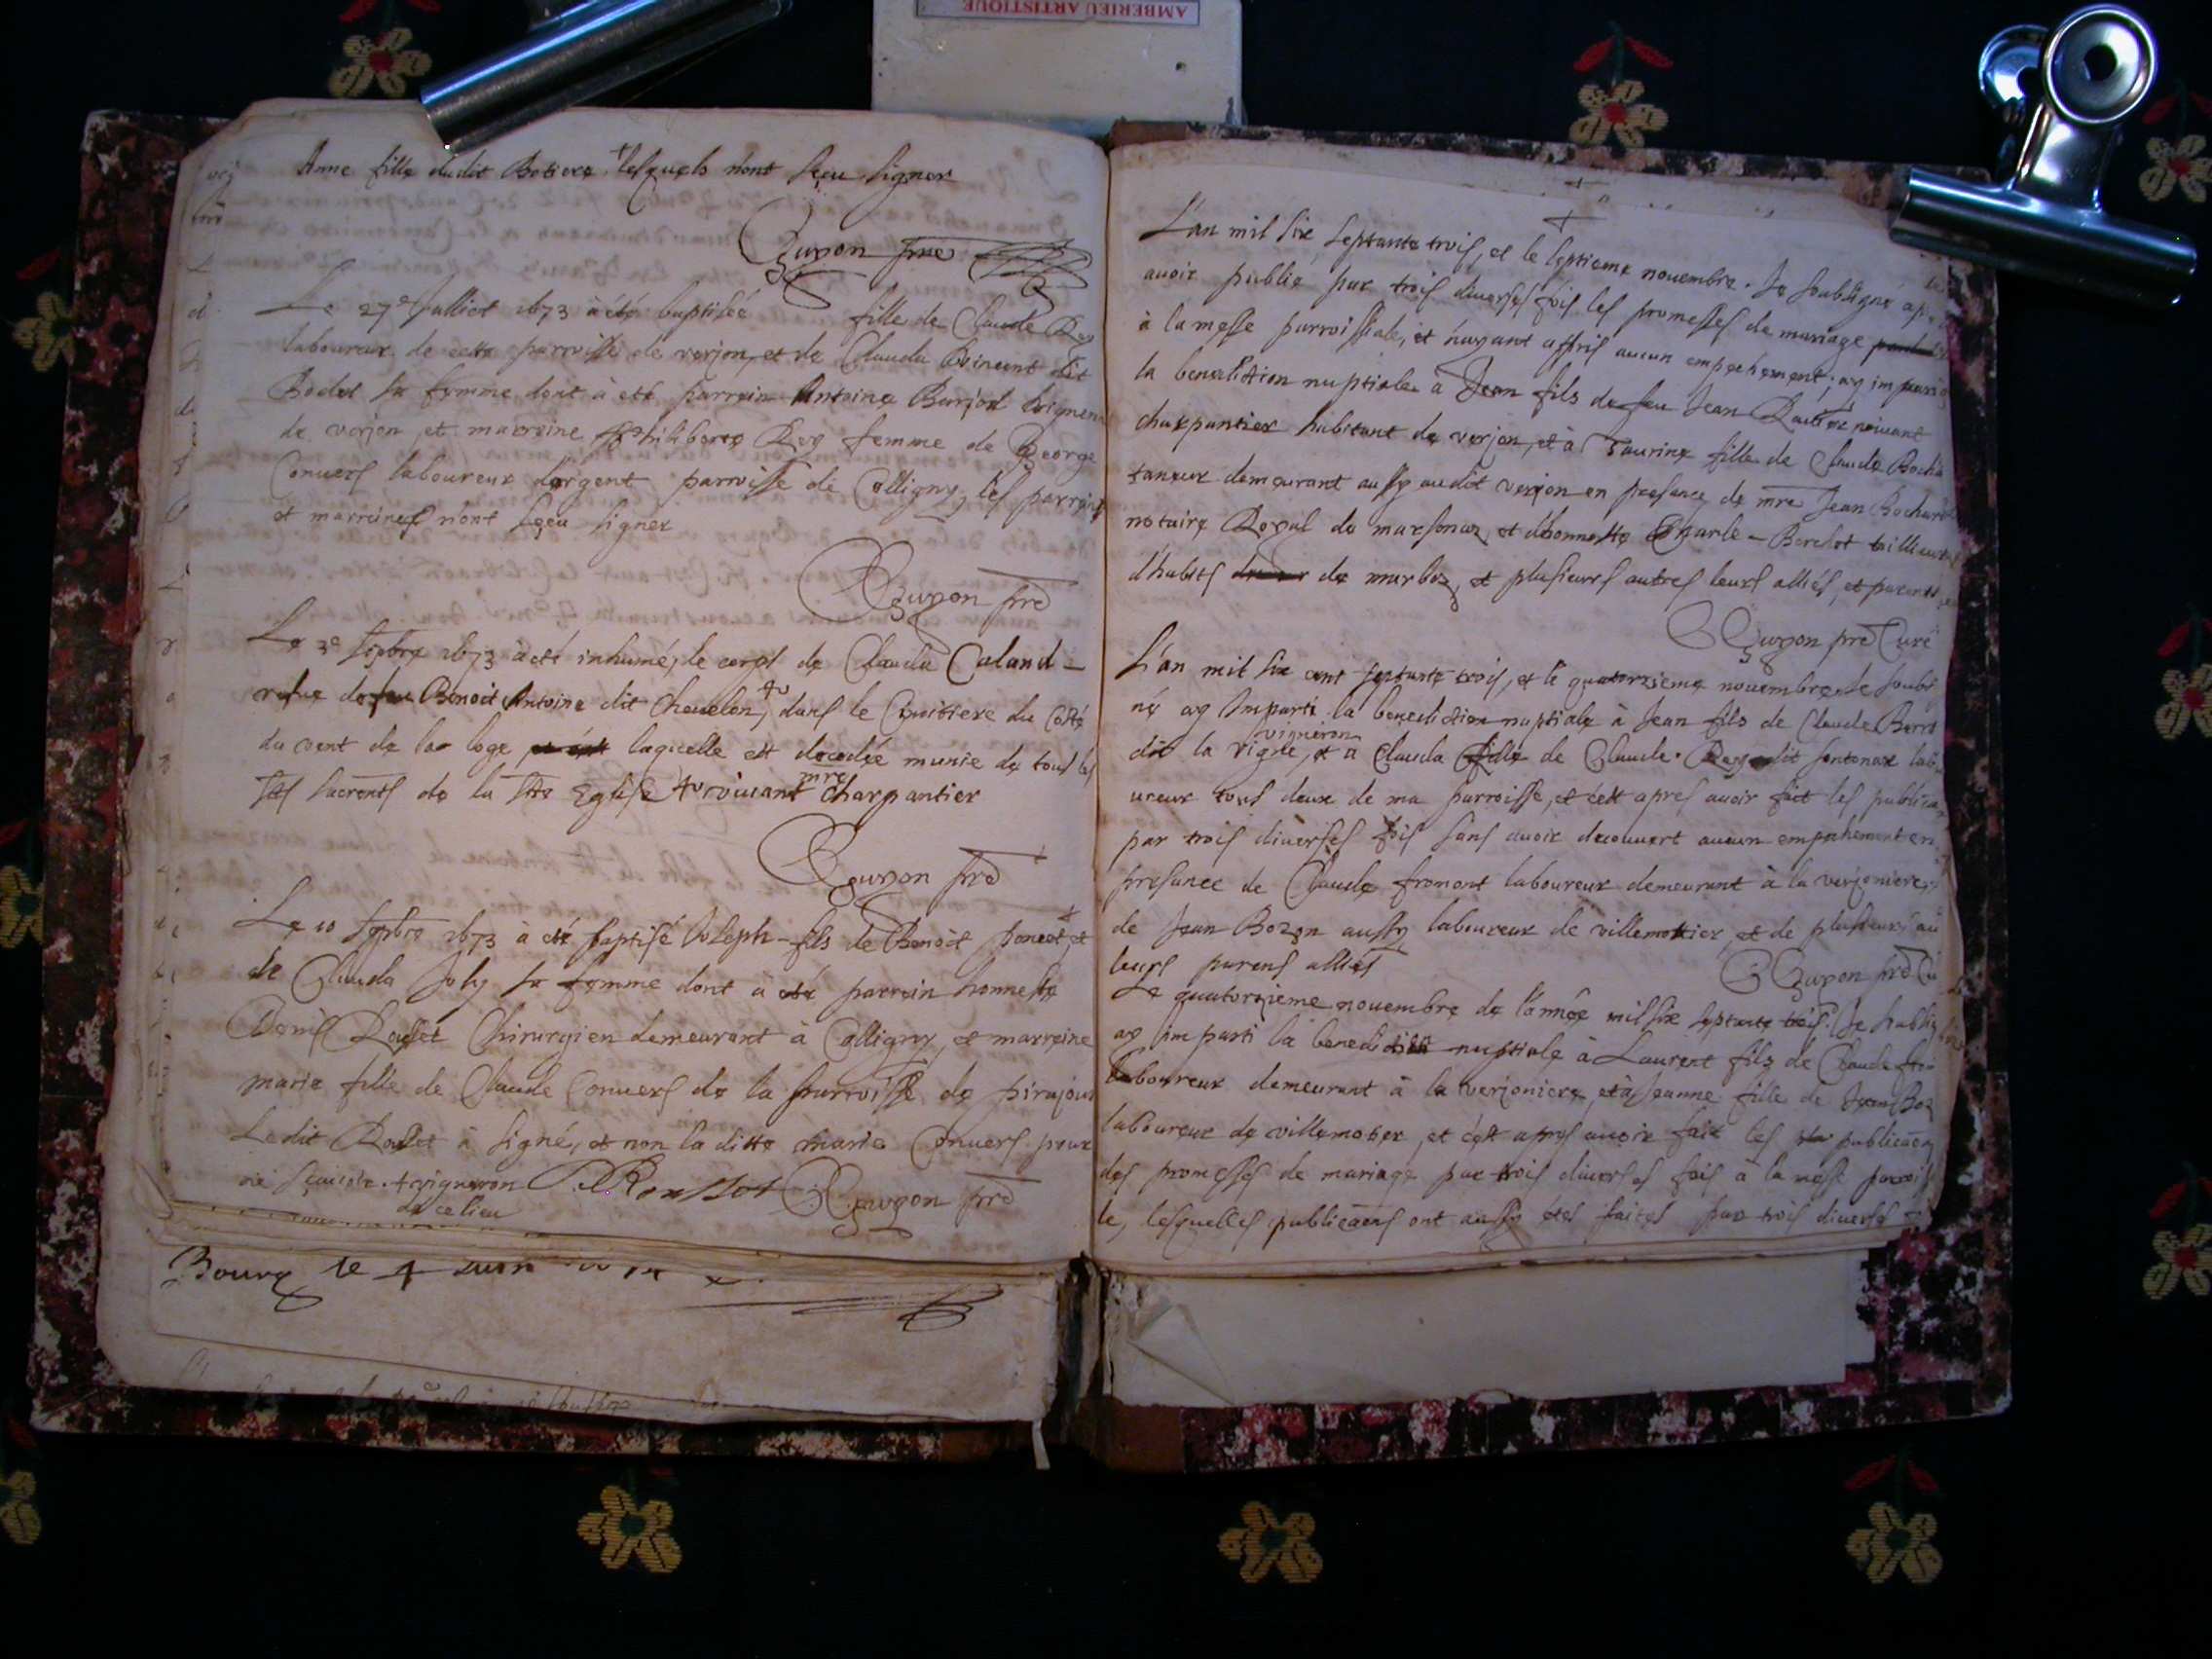 AMBERIEU ARTISTIQUE
Anne fille dudit Botiere + lesquels nont sçeu signer
Guyon pre
Le 27e Julliet 1673 à été baptisée fille de Claude Rey
laboureur de cette parroisse de verjon, et de Clauda dit
Bodet sa femme dont à eté parrain Antoine Borjod vigneron
de verjon, et marreine philiberte Rey femme de George
Convers laboureur dargent parroisse de Colligny, les parrein
et marreines n'ont sçeu signer
Guyon pre
Le 3e septbre 1673 à été inhumé, le corps de Clauda Caland-
relue de feu Benoit Antoine dit Chevelon, dans le Cimitiere du costé
du vent de la loge laquelle est decedée munie de tous les
Sts sacrents de la Ste Eglise vivant mre charpantier
Guyon pre
Le 10 septbre 1673 à eté baptisé Joseph fils de Benoit poncet + et
de Clauda Joly sa femme dont à eté parrein honneste
Denis Rouset Chirurgien demeurant à Colligny, et marreine
marie fille de Claude Convers de la parroisse de pirajoux
Ledit à signé, et non la ditte marie Convers pour
ne sçavoir. + vigneron de ce lieu Guyon pre
Bourg le 4 Juin
L'an mil six septante trois, et le septieme novembre. Je soubsigné ap
avoir publié par trois diverses fois les promesses de mariage
à la messe parroissiale, et n'ayant appris aucun empechement, ay imparti
la benediction nuptiale à Jean fils de feu Jean vivant
charpantier habitant de verjon, et à Taurine fille de Claude Bocha
taneur demeurant aussy audit verjon en presance de mre Jean Bochard
notaire Royal de marsonaz, et d'honneste Charle Berchet tailleur
d'habits de marboz, et plusieurs autres leurs alliés, et parents
Guyon pre Curé
L'an mil six cent septante trois, et le quatorzieme novembre Je soubs
né ay Imparti la benediction nuptiale à Jean fils de Claude
dit la vigne, vigneron et à Clauda fille de Claude Rey dit lab
ureur tous deux de ma parroisse, et c'est apres avoir fait les publica
par trois diverses fois sans avoir decouvert aucun empechement en
presance de Claude fromont laboureur demeurant à la verjoniere,
de Jean Bozon aussy laboureur de villemotier, et de plusieurs au
leurs parens alliés Guyon pre Cu
Le quatorzieme novembre de l'année mil six septante trois. Je soubsig
ay imparti la benediction nuptiale à Laurent fils de Claude fro
laboureur demeurant à la verjoniere, et à Jeanne fille de Jean Boz
laboureur de villemotier, et c'est apres avoir fait les publicaons
des promesses de mariage par trois diverses fois à la messe parrois
le, lesquelles publicaons ont aussy étés faites par trois diverses